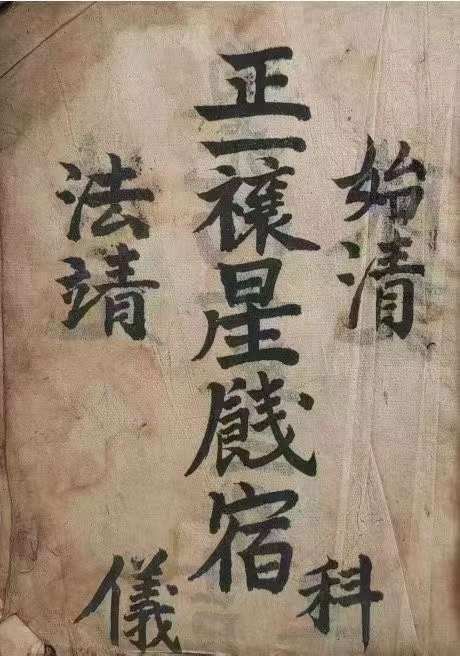 始清
正一禳星餞宿
科儀
法靖